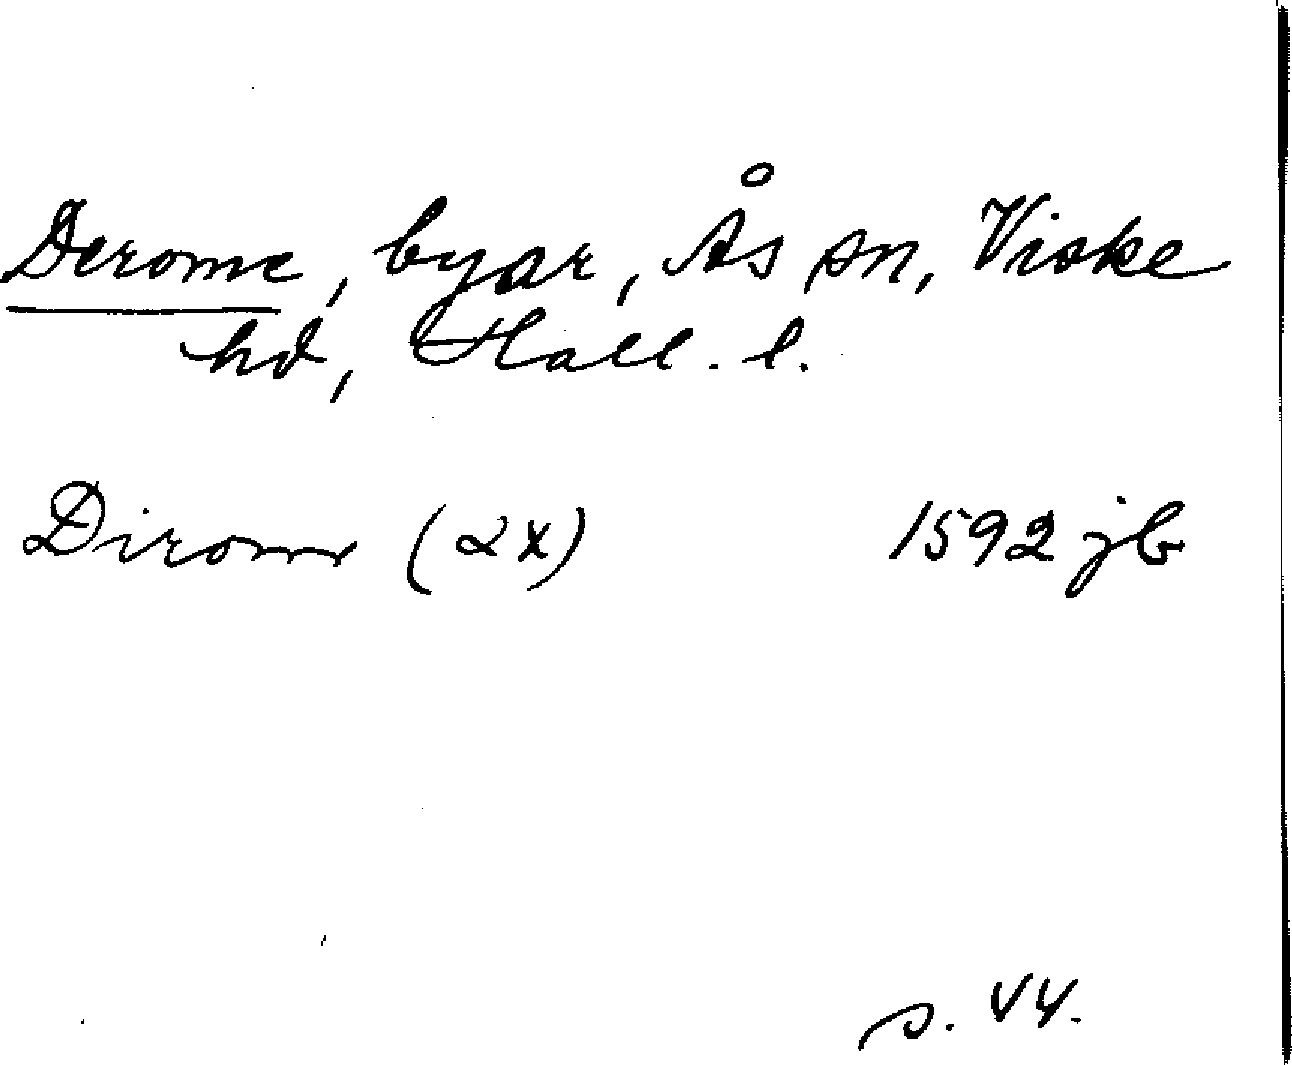 Derome, byar, Ås sn, Viske
hd, Hall. l.
Dirom (2x) 1592 jb
s. 44.